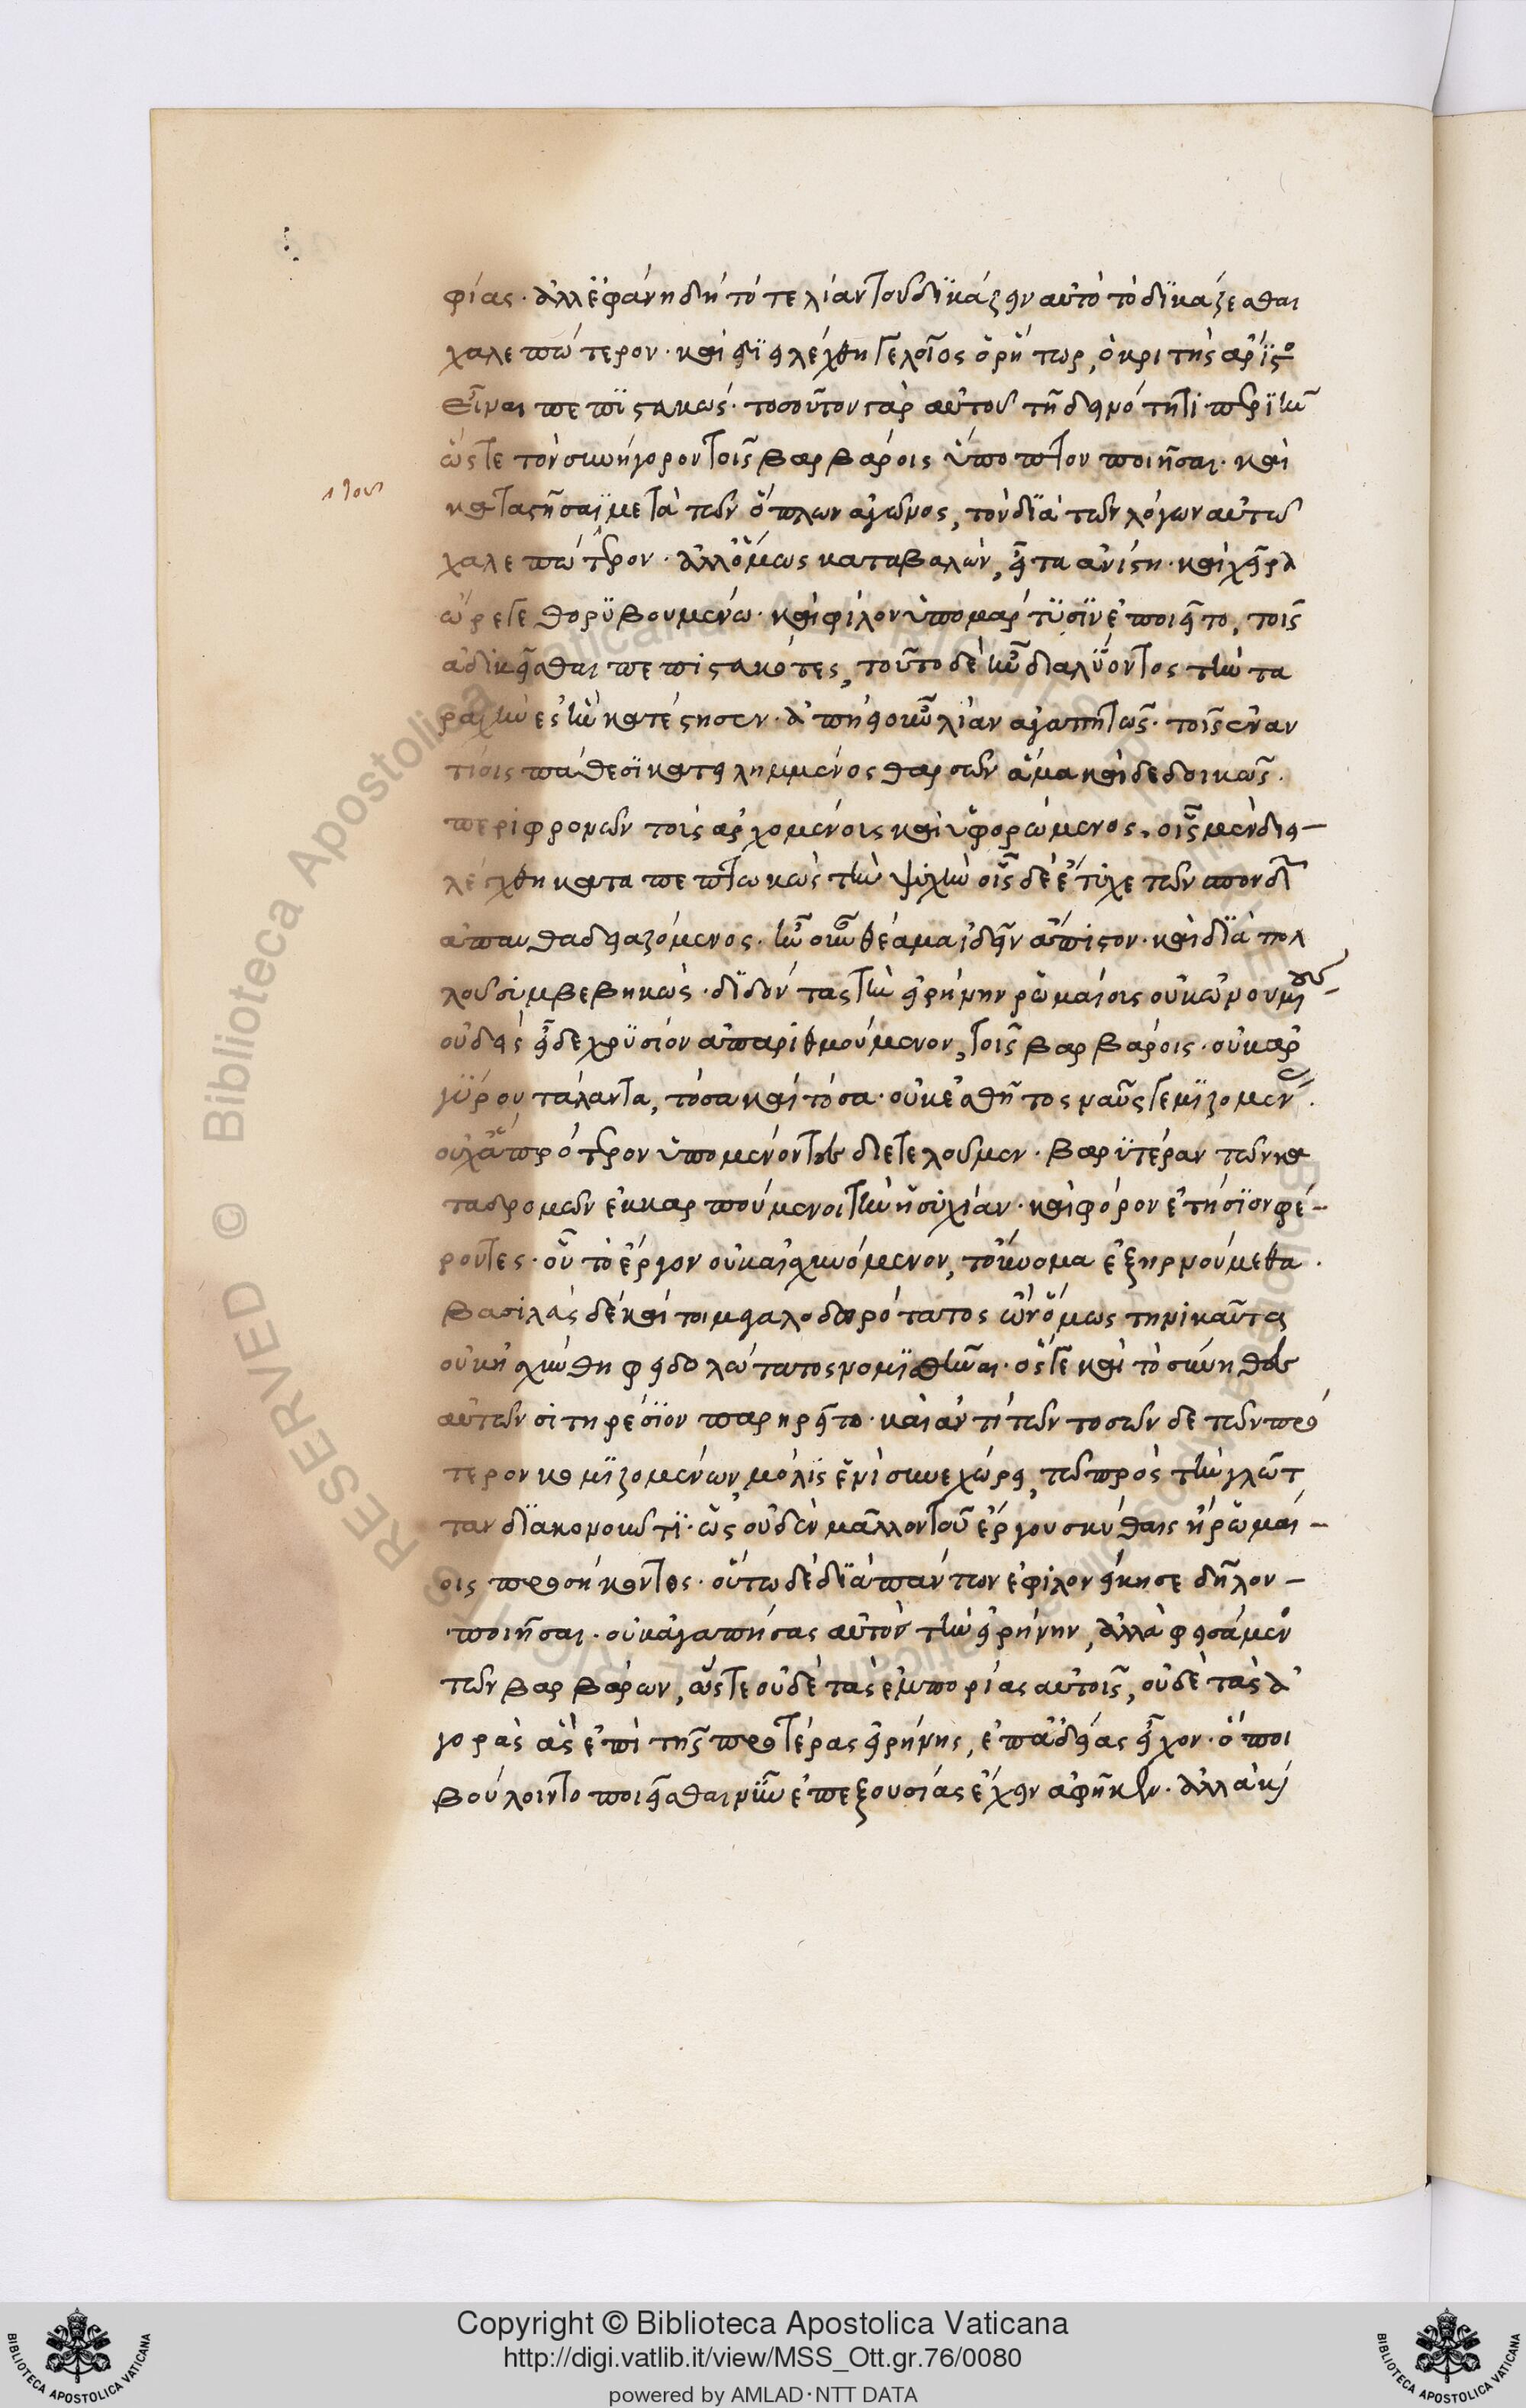 φίας. ἀλλ' ἐφάνη δὴ τότε λίαν τοῦ δϊκάζειν αὐτὸ τὸ δϊκάζεσθαι
χαλεπώτερον. καὶ διηλέχθη γελοῖος ὁ ῥήτωρ, ὁ κριτὴς
εἶναι πεπϊστευκώς. τοσοῦτον γὰρ αὐτοῦ τῇ δεινότητι περιῆν
ὥστε τὸν συνήγορον τοῖς βαρβάροις ὕποπτον ποιῆσαι. καὶ
καταστῆσαϊ μετὰ τῶν ὅπλων ἀγῶνος, τὸν δϊὰ τῶν λόγων αὐτῶ
χαλεπώτερον. ἀλλ' ὅμως καταβαλὼν, εἶτα ἀνίστη. καὶ χεῖρα
ὤρεγε θορϋβουμένω. καὶ φίλον ὑπομαρτϋσϊν ἐποιεῖτο, τοῖς
ἀδικεῖσθαι πεπιστευκότες, τοῦτο δὲ διαλϋοντος τὴν τα
ραχὴν κατέστησεν. ἀπῄει οὖν λίαν ἀγαπητῶς. τοῖς ἐναν
τίοις πάθεσϊ κατειλημμένος θαρσῶν ἅμα καὶ δεδοικώς.
περιφρονῶν τοῖς ἀρχομένοις καὶ ὑφορώμενος. οἷς μὲν διει-
λέχθη καταπεπτωκὼς τὴν ψυχὴν οἷς δὲ ἔτυχε τῶν σπονδῶ
ἀπαυθαδειαζόμενος. ἦν οὖν θέαμα ἰδεῖν ἄπιστον. καὶ δϊὰ πολ
λοῦ συμβεβηκὼς. δϊδόντας τὴν εἰρήνην ῥωμαίοις οὐκ ὠνουμένους
οὐδεὶς εἶδε χρϋσίον ἀπαριθμούμενον, τοῖς βαρβάροις. οὐκ ἀρ
γϋρου τάλαντα, τόσα καὶ τόσα. οὐκ ἐσθῆτος ναῦς γεμϊζομεν.
οὐχ ἃ πρότερον ὑπομένοντες διετελοῦμεν. βαρϋτέραν τῶν κα
ταδρομῶν ἐκκαρπούμενοι τὴν ἡσυχίαν. καὶ φόρον ἐτήσϊον φέ-
ροντες. οὗ τὸ ἔργον οὐκ αἰσχυνόμενον, τοὔνομα ἐξηρνούμεθα.
βασιλεὺς δὲ καί τοι μεγαλοδωρότατος ὢν ὅμως τηνικαῦτα
οὐκ ᾐσχύνθη φειδωλότατος νομϊσθῆναι. ὅς γε καὶ τὸ σύνηθες
αὐτῶν σιτηρέσϊον παρῃρεῖτο. καὶ ἀντὶ τῶν τοσῶνδε τῶν πρό
τερον κομϊζομένων, μόλϊς ἑνὶ συνεχώρει, τῶ πρὸς τὴν γλῶτ
ταν δϊακονοῦντϊ. ὡς οὐδὲν μᾶλλον τοῦ ἔργου σκύθαις ἢ ῥωμαί-
οις προσήκοντος. οὕτω δὲ δϊὰ πάντων ἐφιλονείκησε δῆλον-
ποιῆσαι. οὐκ ἀγαπήσας αὐτὸν τὴν εἰρήνην, ἀλλὰ φεισάμενο
τῶν βαρβάρων, ὥστε οὐδὲ τὰς ἐμπορίας αὐτοῖς, οὐδὲ τὰς ἀ
γορὰς ἃς ἐπὶ τῆς προτέρας εἰρήνης, ἐπ' ἀδείας εἶχον. ὅποι
βούλοιντο ποιεῖσθαι νῦν ἐπ' ἐξουσίας ἔχειν ἀφῆκεν. ἀλλὰ καὶ
Copyright © Biblioteca Apostolica Vaticana
http://digi.vatlib.it/view/MSS_Ott.gr.76/0080
powered by AMLAD·NTT DATA